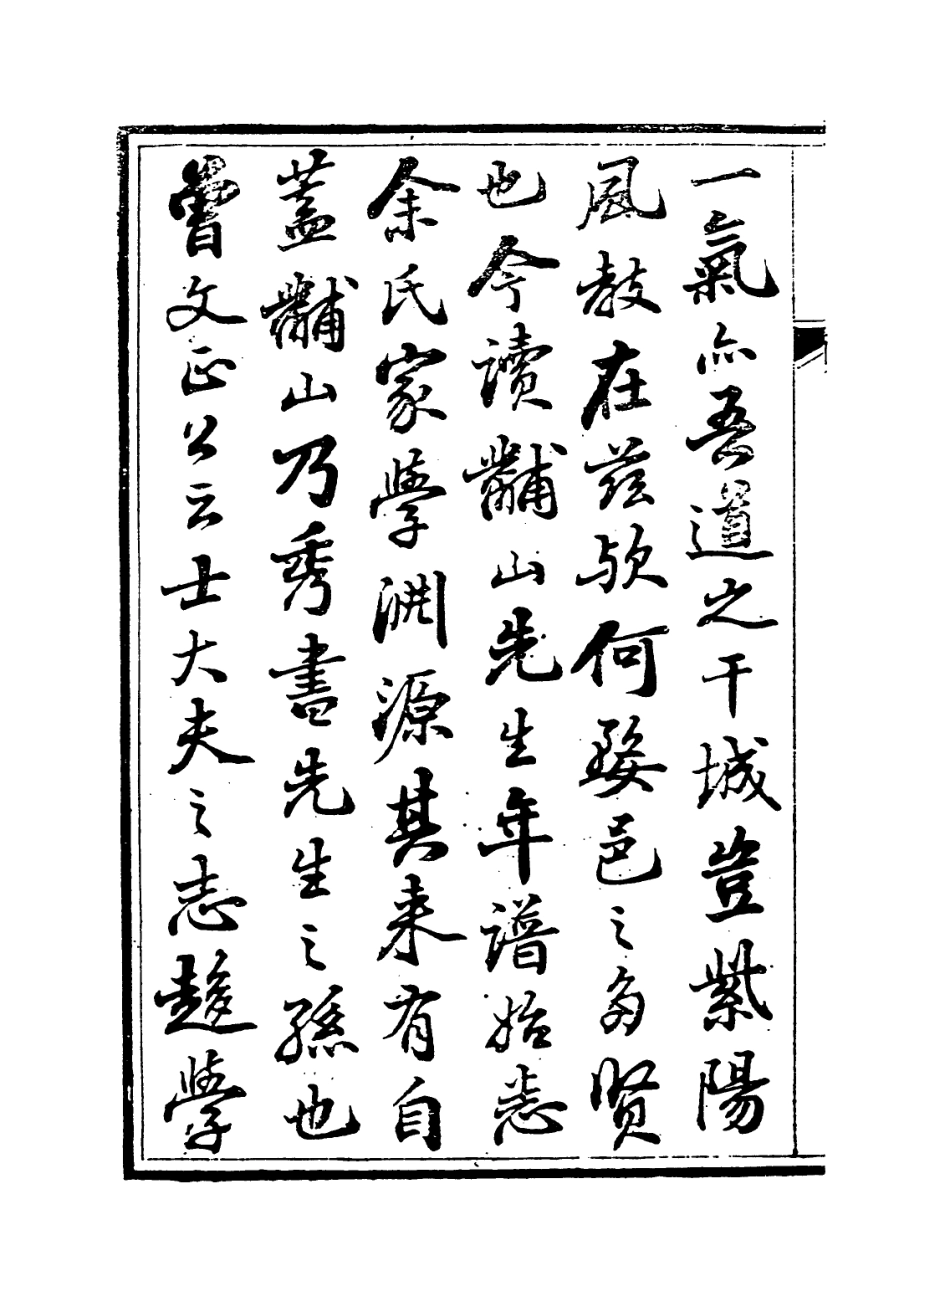 一氣亦吾道之干城豈紫陽
風教在茲歟何婺邑之多賢
也今讀黼山先生年譜始悉
余氏家學淵源其來有自
蓋黼山乃秀書先生之孫也
曾文正公云士大夫之志趨學